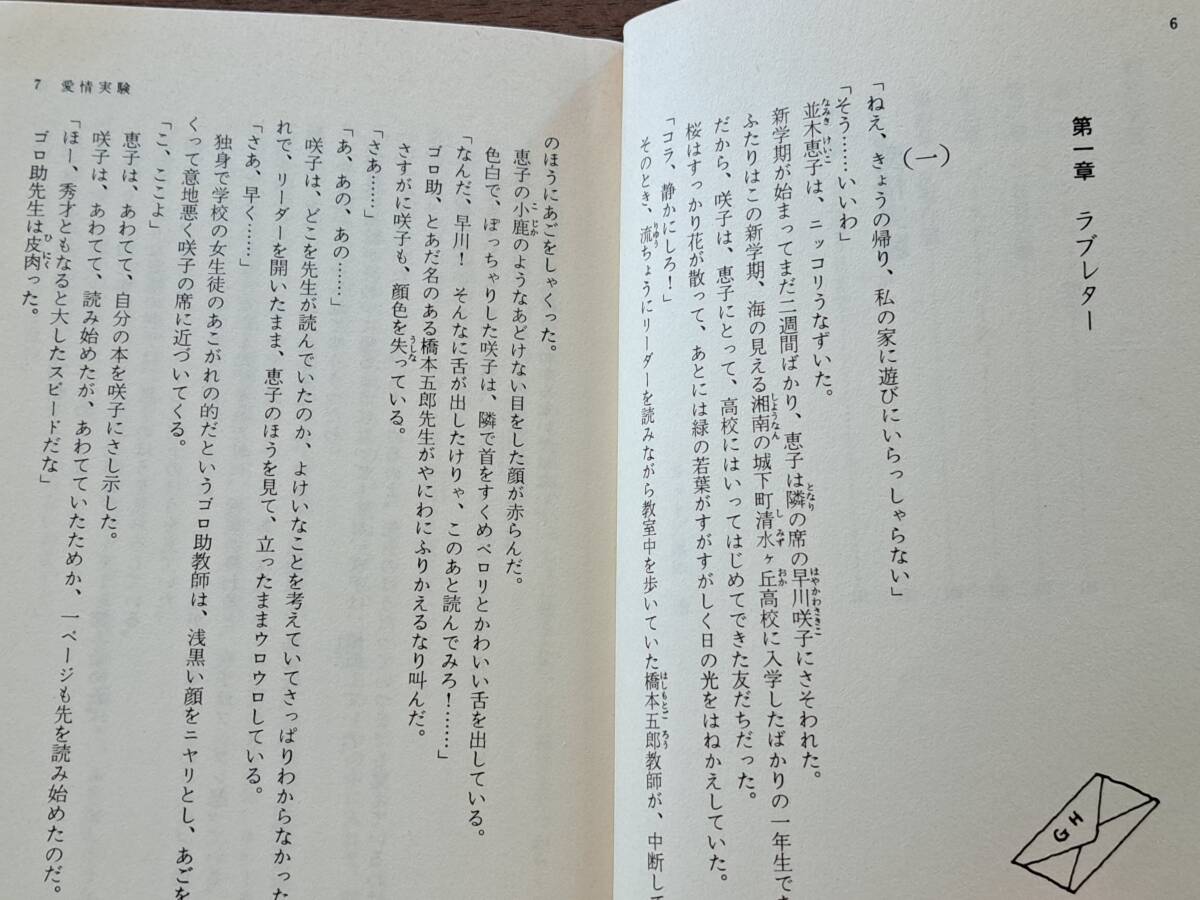 6
第一章　ラブレター
GH
（一）
「ねえ、きょうの帰り、私の家に遊びにいらっしゃらない」
「そう……いいわ」
並木恵子は、ニッコリうなずいた。
新学期が始まってまだ二週間ばかり、恵子は隣の席の早川咲子にさそわれた。
ふたりはこの新学期、海の見える湘南の城下町清水ヶ丘高校に入学したばかりの一年生で
だから、咲子は、恵子にとって、高校にはいってはじめてできた友だちだった。
桜はすっかり花が散って、あとには緑の若葉がすがすがしく日の光をはねかえしていた。
「コラ、静かにしろ！」
そのとき、流ちょうにリーダーを読みながら教室中を歩いていた橋本五郎教師が、中断して
7　愛情実験
のほうにあごをしゃくった。
恵子の小鹿のようなあどけない目をした顔が赤らんだ。
色白で、ぽっちゃりした咲子は、隣で首をすくめペロリとかわいい舌を出している。
「なんだ、早川！　そんなに舌が出したけりゃ、このあと読んでみろ！……」
ゴロ助、とあだ名のある橋本五郎先生がやにわにふりかえるなり叫んだ。
さすがに咲子も、顔色を失っている。
「さあ……」
「あ、あの、あの……」
咲子は、どこを先生が読んでいたのか、よけいなことを考えていてさっぱりわからなかった
れで、リーダーを開いたまま、恵子のほうを見て、立ったままウロウロしている。
「さあ、早く……」
独身で学校の女生徒のあこがれの的だというゴロ助教師は、浅黒い顔をニヤリとし、あごを
くって意地悪く咲子の席に近づいてくる。
「こ、ここよ」
恵子は、あわてて、自分の本を咲子にさし示した。
咲子は、あわてて、読み始めたが、あわてていたためか、一ページも先を読み始めたのだ。
「ほー、秀才ともなると大したスピードだな」
ゴロ助先生は皮肉った。